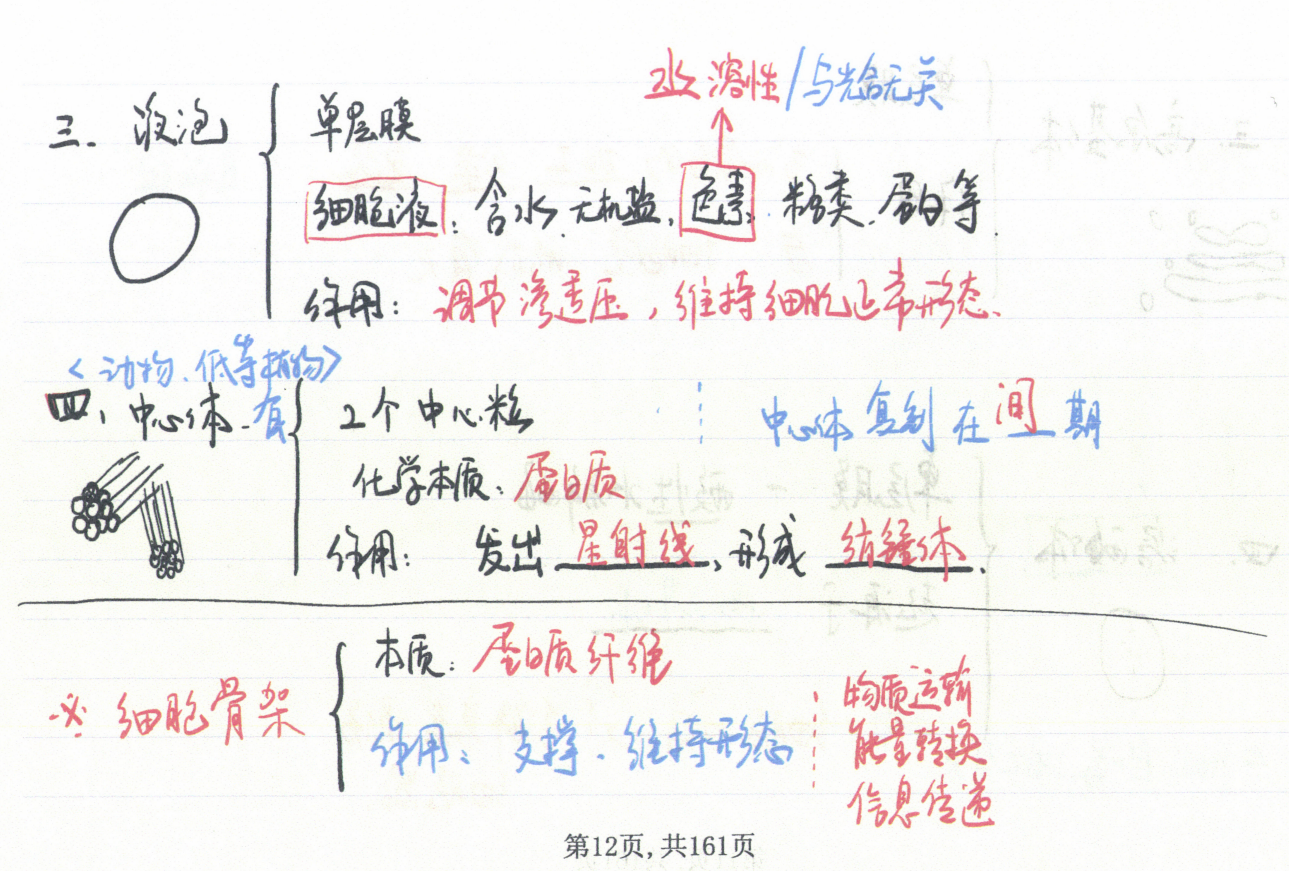 水溶性/与光合无关
三. 液泡
单层膜
细胞液: 含水、无机盐、色素、糖类、蛋白等.
作用: 调节渗透压, 维持细胞正常形态.
<动物、低等植物>
四、中心体-有
2个中心粒
中心体复制在间期
化学本质: 蛋白质
作用: 发出星射线, 形成纺锤体.
※ 细胞骨架
本质: 蛋白质纤维
作用: 支撑、维持形态
物质运输
能量转换
信息传递
第12页,共161页